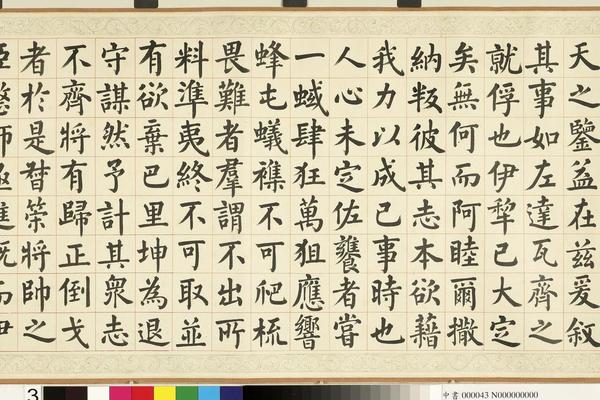 天之鑒益在茲爰敘
其事如左達瓦齊之
就俘也伊犂已大定
矣無何而阿睦爾撒
納叛彼其志本欲藉
我力以成己事時也
人心未定佐饔者嘗
一蜮肆狂萬狙應響
蜂屯蟻襍不可爬梳
畏難者羣謂不出所
料準夷終不可取並
有欲棄巴里坤為退
守謀然予計其衆志
不齊將有歸正倒戈
者於是督策將帥之
3
中書 000043 N000000000